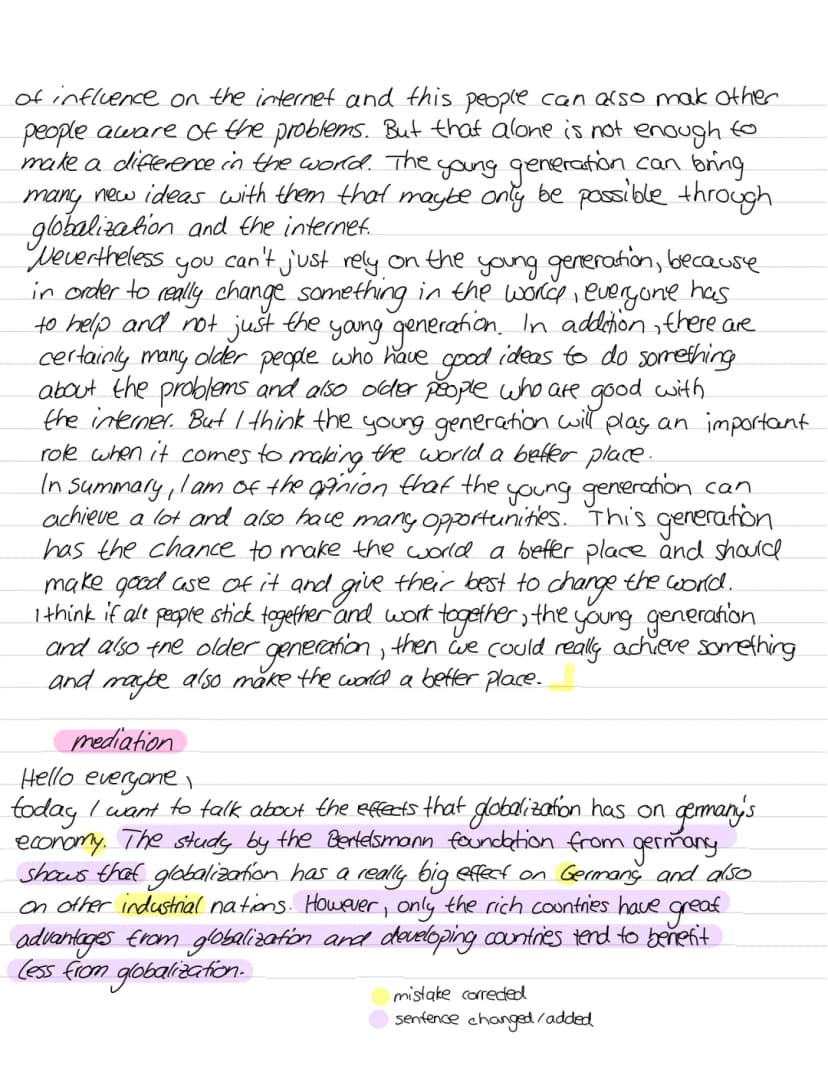 of influence on the internet and this people can also mak other
people aware of the problems. But that alone is not enough to
make a difference in the world. The young generation can bring
many new ideas with them that maybe only be possible through
globalization and the internet.
Nevertheless you can't just rely on the young generation, because
in order to really change something in the world, everyone has
to help and not just the young generation. In addition, there are
certainly many older people who have good ideas to do something
about the problems and also older people who are good with
the internet. But I think the young generation will play an important
role when it comes to making the world a better place.
In summary, I am of the opinion that the young generation can
achieve a lot and also have many opportunities. This generation
has the chance to make the world a better place and should
make good use of it and give their best to change the world.
I think if all people stick together and work together, the young generation
and also the older generation, then we could really achieve something
and maybe also make the world a better place.
mediation
Hello everyone,
today I want to talk about the effects that globalization has on germany's
economy. The study by the Bertelsmann foundation from germany
shows that globalization has a really big effect on Germany and also
on other industrial nations. However, only the rich countries have great
advantages from globalization and developing countries tend to benefit
less from globalization.
mistake corrected
sentence changed/added